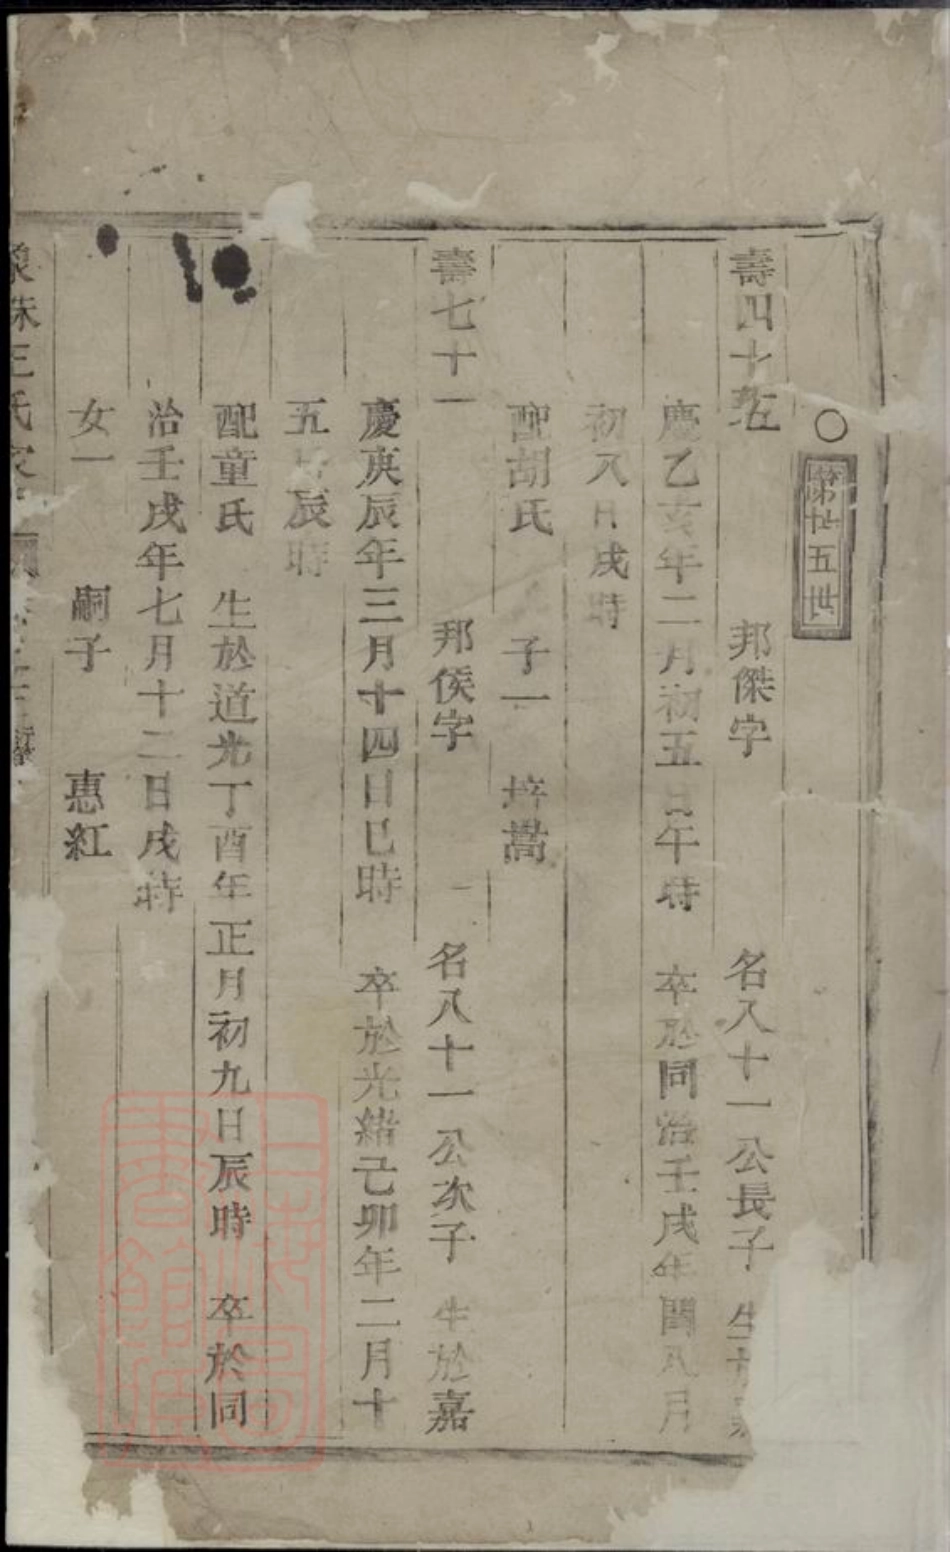 ○ 第廿五世
壽四十五 邦傑字 名八十一公長子 生於嘉
慶乙亥年二月初五日午時 卒於同治壬戌年閏八月
初八日戌時
配胡氏 子一 培嵩
壽七十一 邦侯字 名八十一公次子 生於嘉
慶庚辰年三月十四日巳時 卒於光緒己卯年二月十
五日辰時
配童氏 生於道光丁酉年正月初九日辰時 卒於同
治壬戌年七月十二日戌時
女一 嗣子 惠紅
珠王氏家